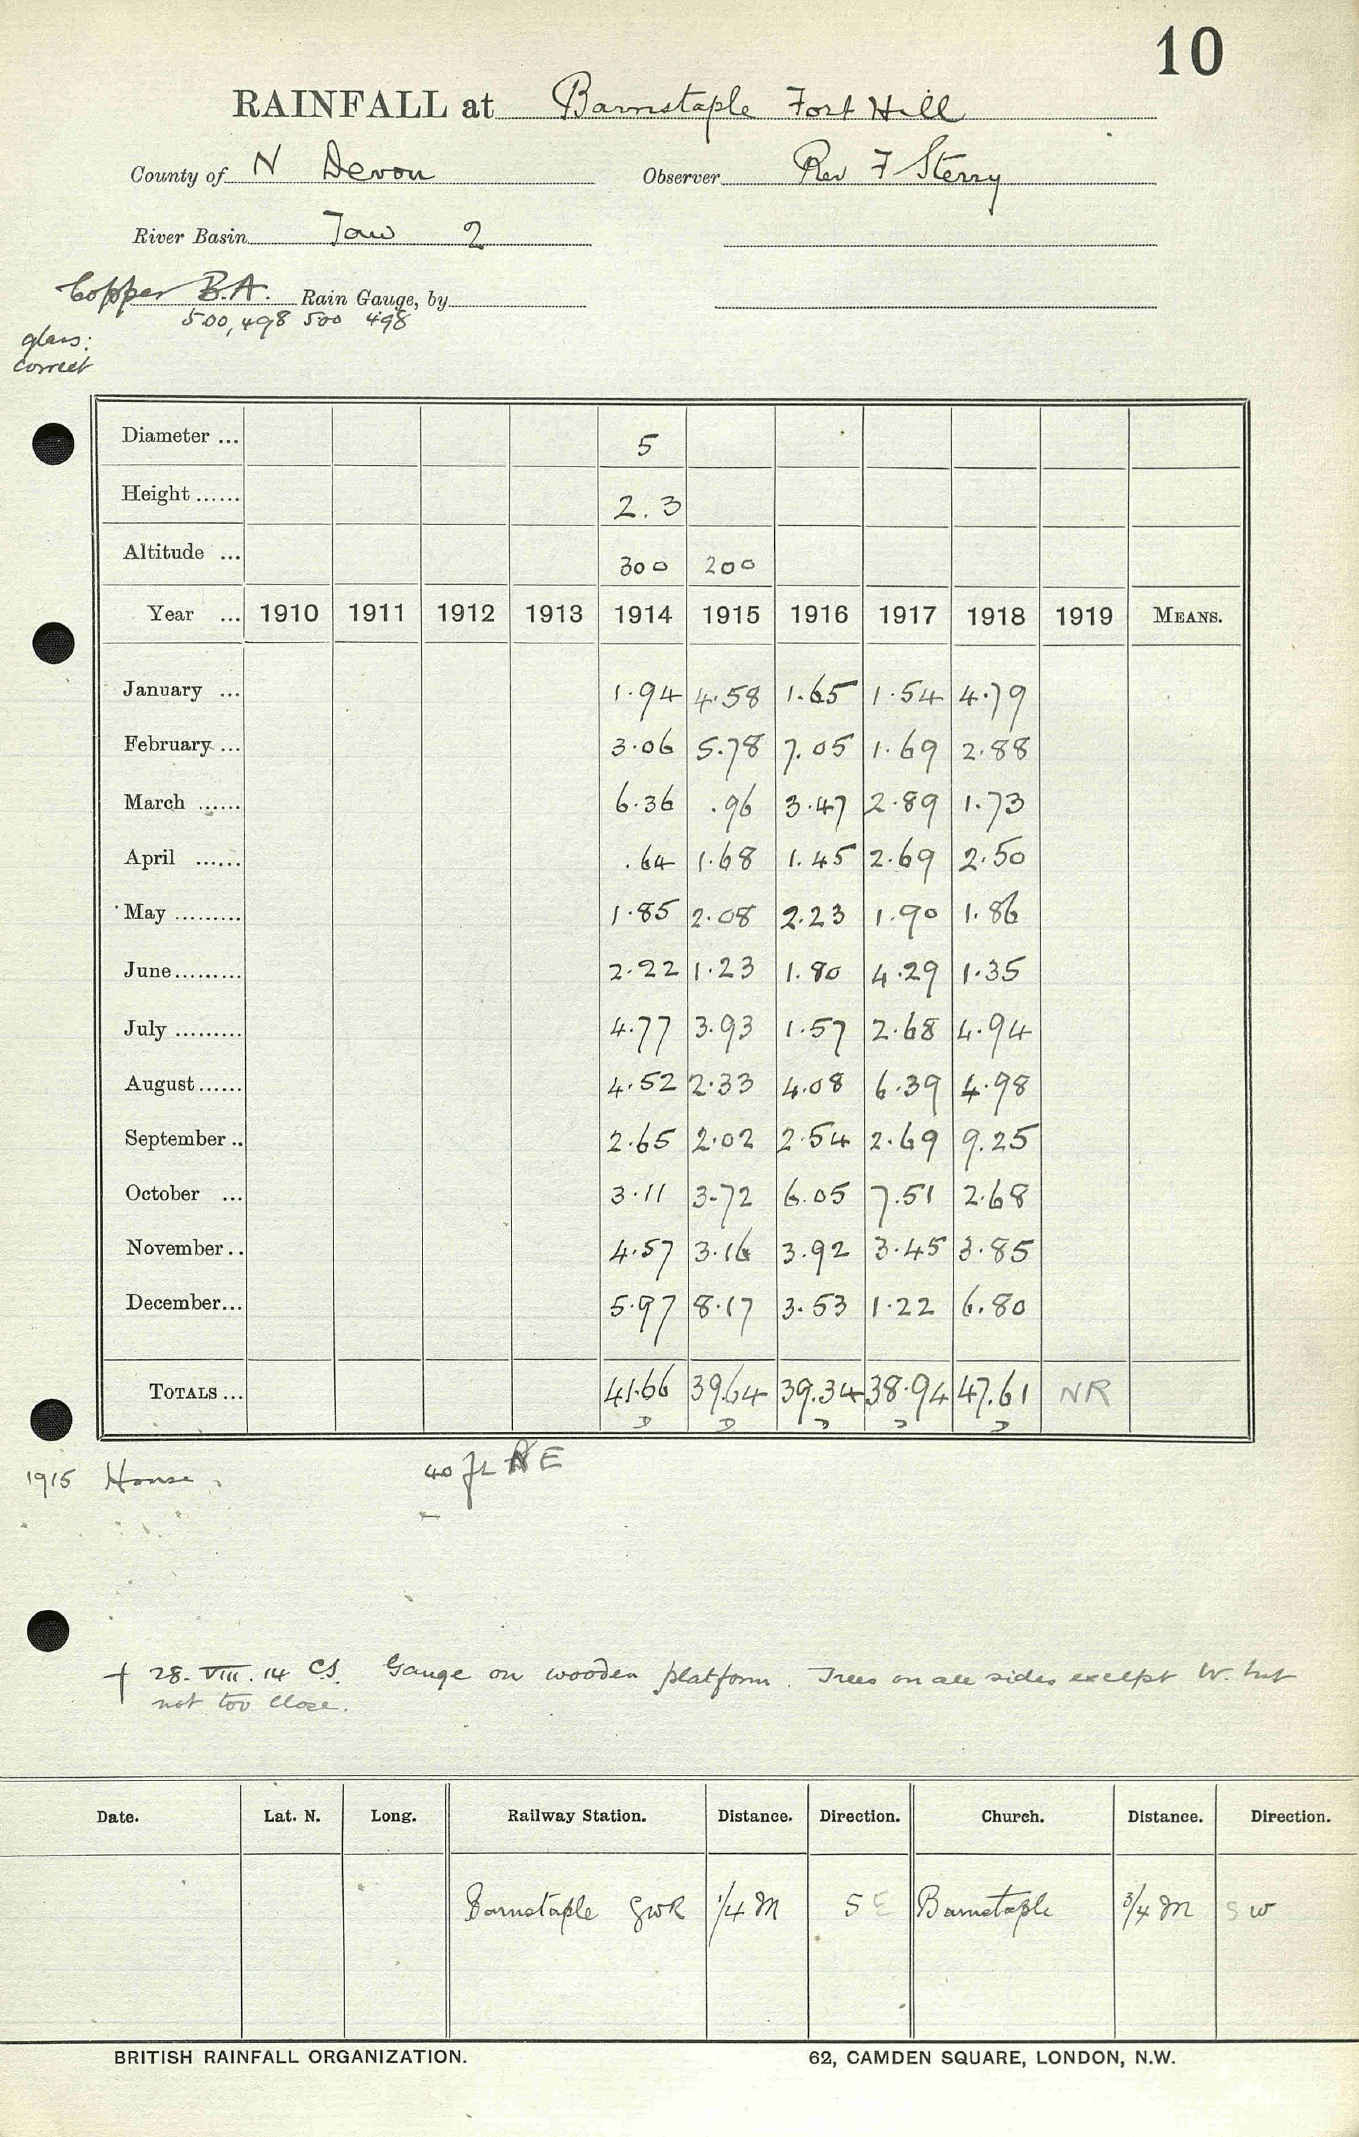 10
RAINFALL at Barnstaple Fort Hill
County of N Devon Observer Rev F Sterry
River Basin Taw 2
Copper B.A. Rain Gauge, by
500, 498 500 498
glass:
correct
Diameter ... 5
Height ...... 2.3
Altitude ... 300 200
Year ... 1910 1911 1912 1913 1914 1915 1916 1917 1918 1919 MEANS.
January ... 1.94 4.58 1.65 1.54 4.79
February ... 3.06 5.78 7.05 1.69 2.88
March ...... 6.36 .96 3.47 2.89 1.73
April ...... .64 1.68 1.45 2.69 2.50
May ......... 1.85 2.08 2.23 1.90 1.86
June ......... 2.22 1.23 1.80 4.29 1.35
July ......... 4.77 3.93 1.57 2.68 4.94
August ...... 4.52 2.33 4.08 6.39 4.98
September .. 2.65 2.02 2.54 2.69 9.25
October ... 3.11 3.72 6.05 7.51 2.68
November .. 4.57 3.16 3.92 3.45 3.85
December ... 5.97 8.17 3.53 1.22 6.80
TOTALS ... 41.66 39.64 39.34 38.94 47.61 NR
1915 House 40 ft E
28. VIII. 14 CS. Gauge on wooden platform. Trees on all sides except W. but
not too close.
Date. Lat. N. Long. Railway Station. Distance. Direction. Church. Distance. Direction.
Barnstaple GWR 1/4 M S E Barnstaple 3/4 M S W
BRITISH RAINFALL ORGANIZATION. 62, CAMDEN SQUARE, LONDON, N.W.